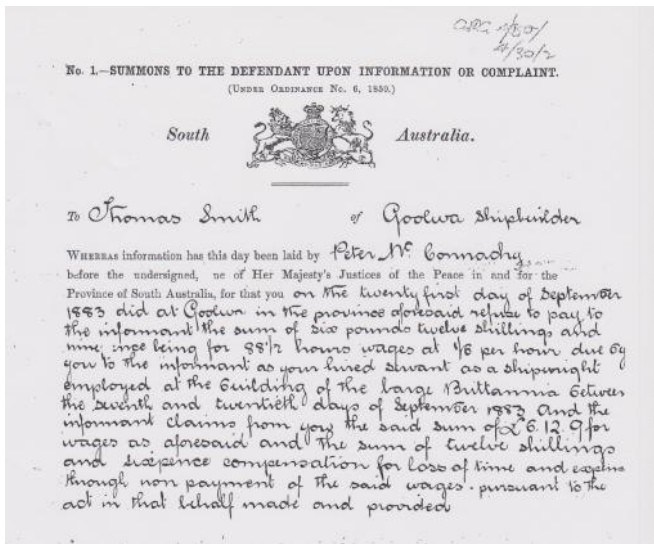 GRG 4/50/
4/30/2
No. 1.—SUMMONS TO THE DEFENDANT UPON INFORMATION OR COMPLAINT.
(UNDER ORDINANCE No. 6, 1850.)
South Australia.
To Thomas Smith of Goolwa Shipbuilder
WHEREAS information has this day been laid by Peter Mc Connachy
before the undersigned, ne of Her Majesty's Justices of the Peace in and for the
Province of South Australia, for that you on the twenty first day of September
1883 did at Goolwa in the province aforesaid refuse to pay to
the informant the sum of six pounds twelve shillings and
nine ence being for 88 1/2 hours wages at 1/6 per hour due by
you to the informant as your hired servant as a shipwright
employed at the building of the barge Brittannia between
the seventh and twentieth days of September 1883 And the
informant claims from you the said sum of £6.12.9 for
wages as aforesaid and the sum of twelve shillings
and sixpence compensation for loss of time and expense
through non payment of the said wages. pursuant to the
act in that behalf made and provided